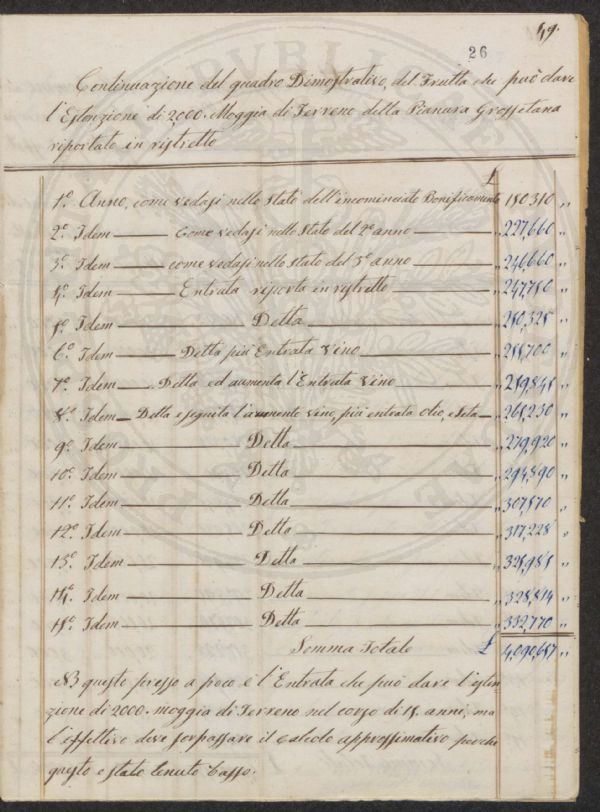 49.
26
Continuazione del quadro Dimostrativo, del Frutto che può dare
l'Estenzione di 2000. Moggia di Terreno della Pianura Grossetana
riportato in ristretto
£
1º. Anno, come vedasi nello Stato dell'incominciato Bonificamento 180310 "
2º. Idem — Come vedasi nello Stato del 2º anno — " 227,660 "
3º. Idem — come vedasi nello stato del 3º anno — " 246,660 "
4º. Idem — Entrata riporta in ristretto — " 247,780 "
5º. Idem — Detta — " 250,325 "
6º. Idem — Detta più Entrata vino — " 255,700 "
7º. Idem — Detta ed aumenta l'Entrata vino — " 259,845 "
8º. Idem — Detta e seguita l'aumento vino, più entrata olio, e Seta — " 265,230 "
9º. Idem — Detta — " 279,920 "
10º. Idem — Detta — " 294,890 "
11º. Idem — Detta — " 307,570 "
12º. Idem — Detta — " 317,228 "
13º. Idem — Detta — " 325,985 "
14º. Idem — Detta — " 328,814 "
15º. Idem — Detta — " 332,770 "
Somma Totale £ 4,090,687 "
NB questo presso a poco è l'Entrata che può dare l'esten
zione di 2000. moggia di Terreno nel corso di 15. anni, ma
l'effettivo deve sorpassare il calcolo approssimativo perche
questo e stato tenuto basso.